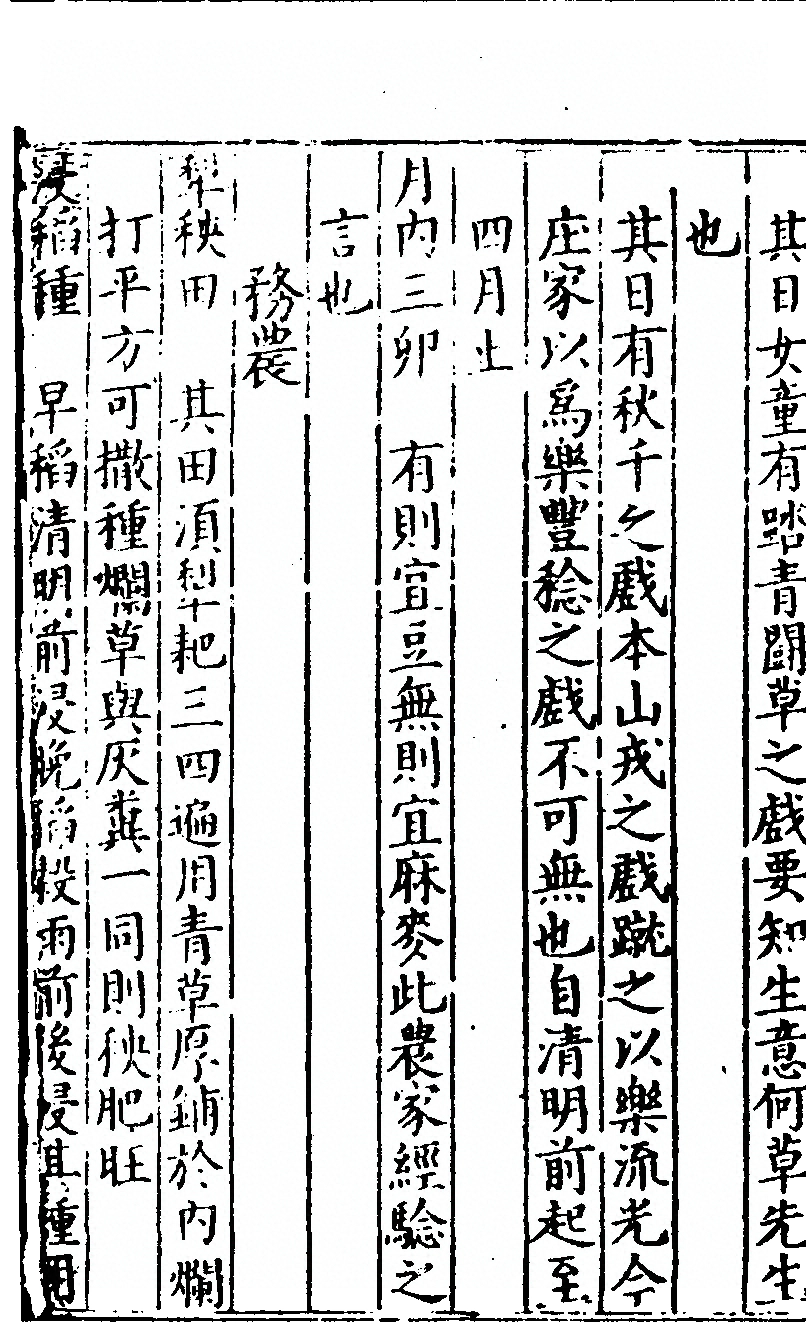 其日女童有踏青鬪草之戲要知生意何草先生
也
其日有秋千之戲本山戎之戲蹴之以樂流光今
庄家以爲樂豐稔之戲不可無也自清明前起至
四月止
月内三卯　有則宜豆無則宜麻麥此農家經驗之
言也
務農
犁秧田　其田須犁耙三四遍用青草厚鋪於内爛
打平方可撒種爛草與灰糞一同則秧肥旺
浸稻種　早稻清明前浸晚稻穀雨前後浸其種用